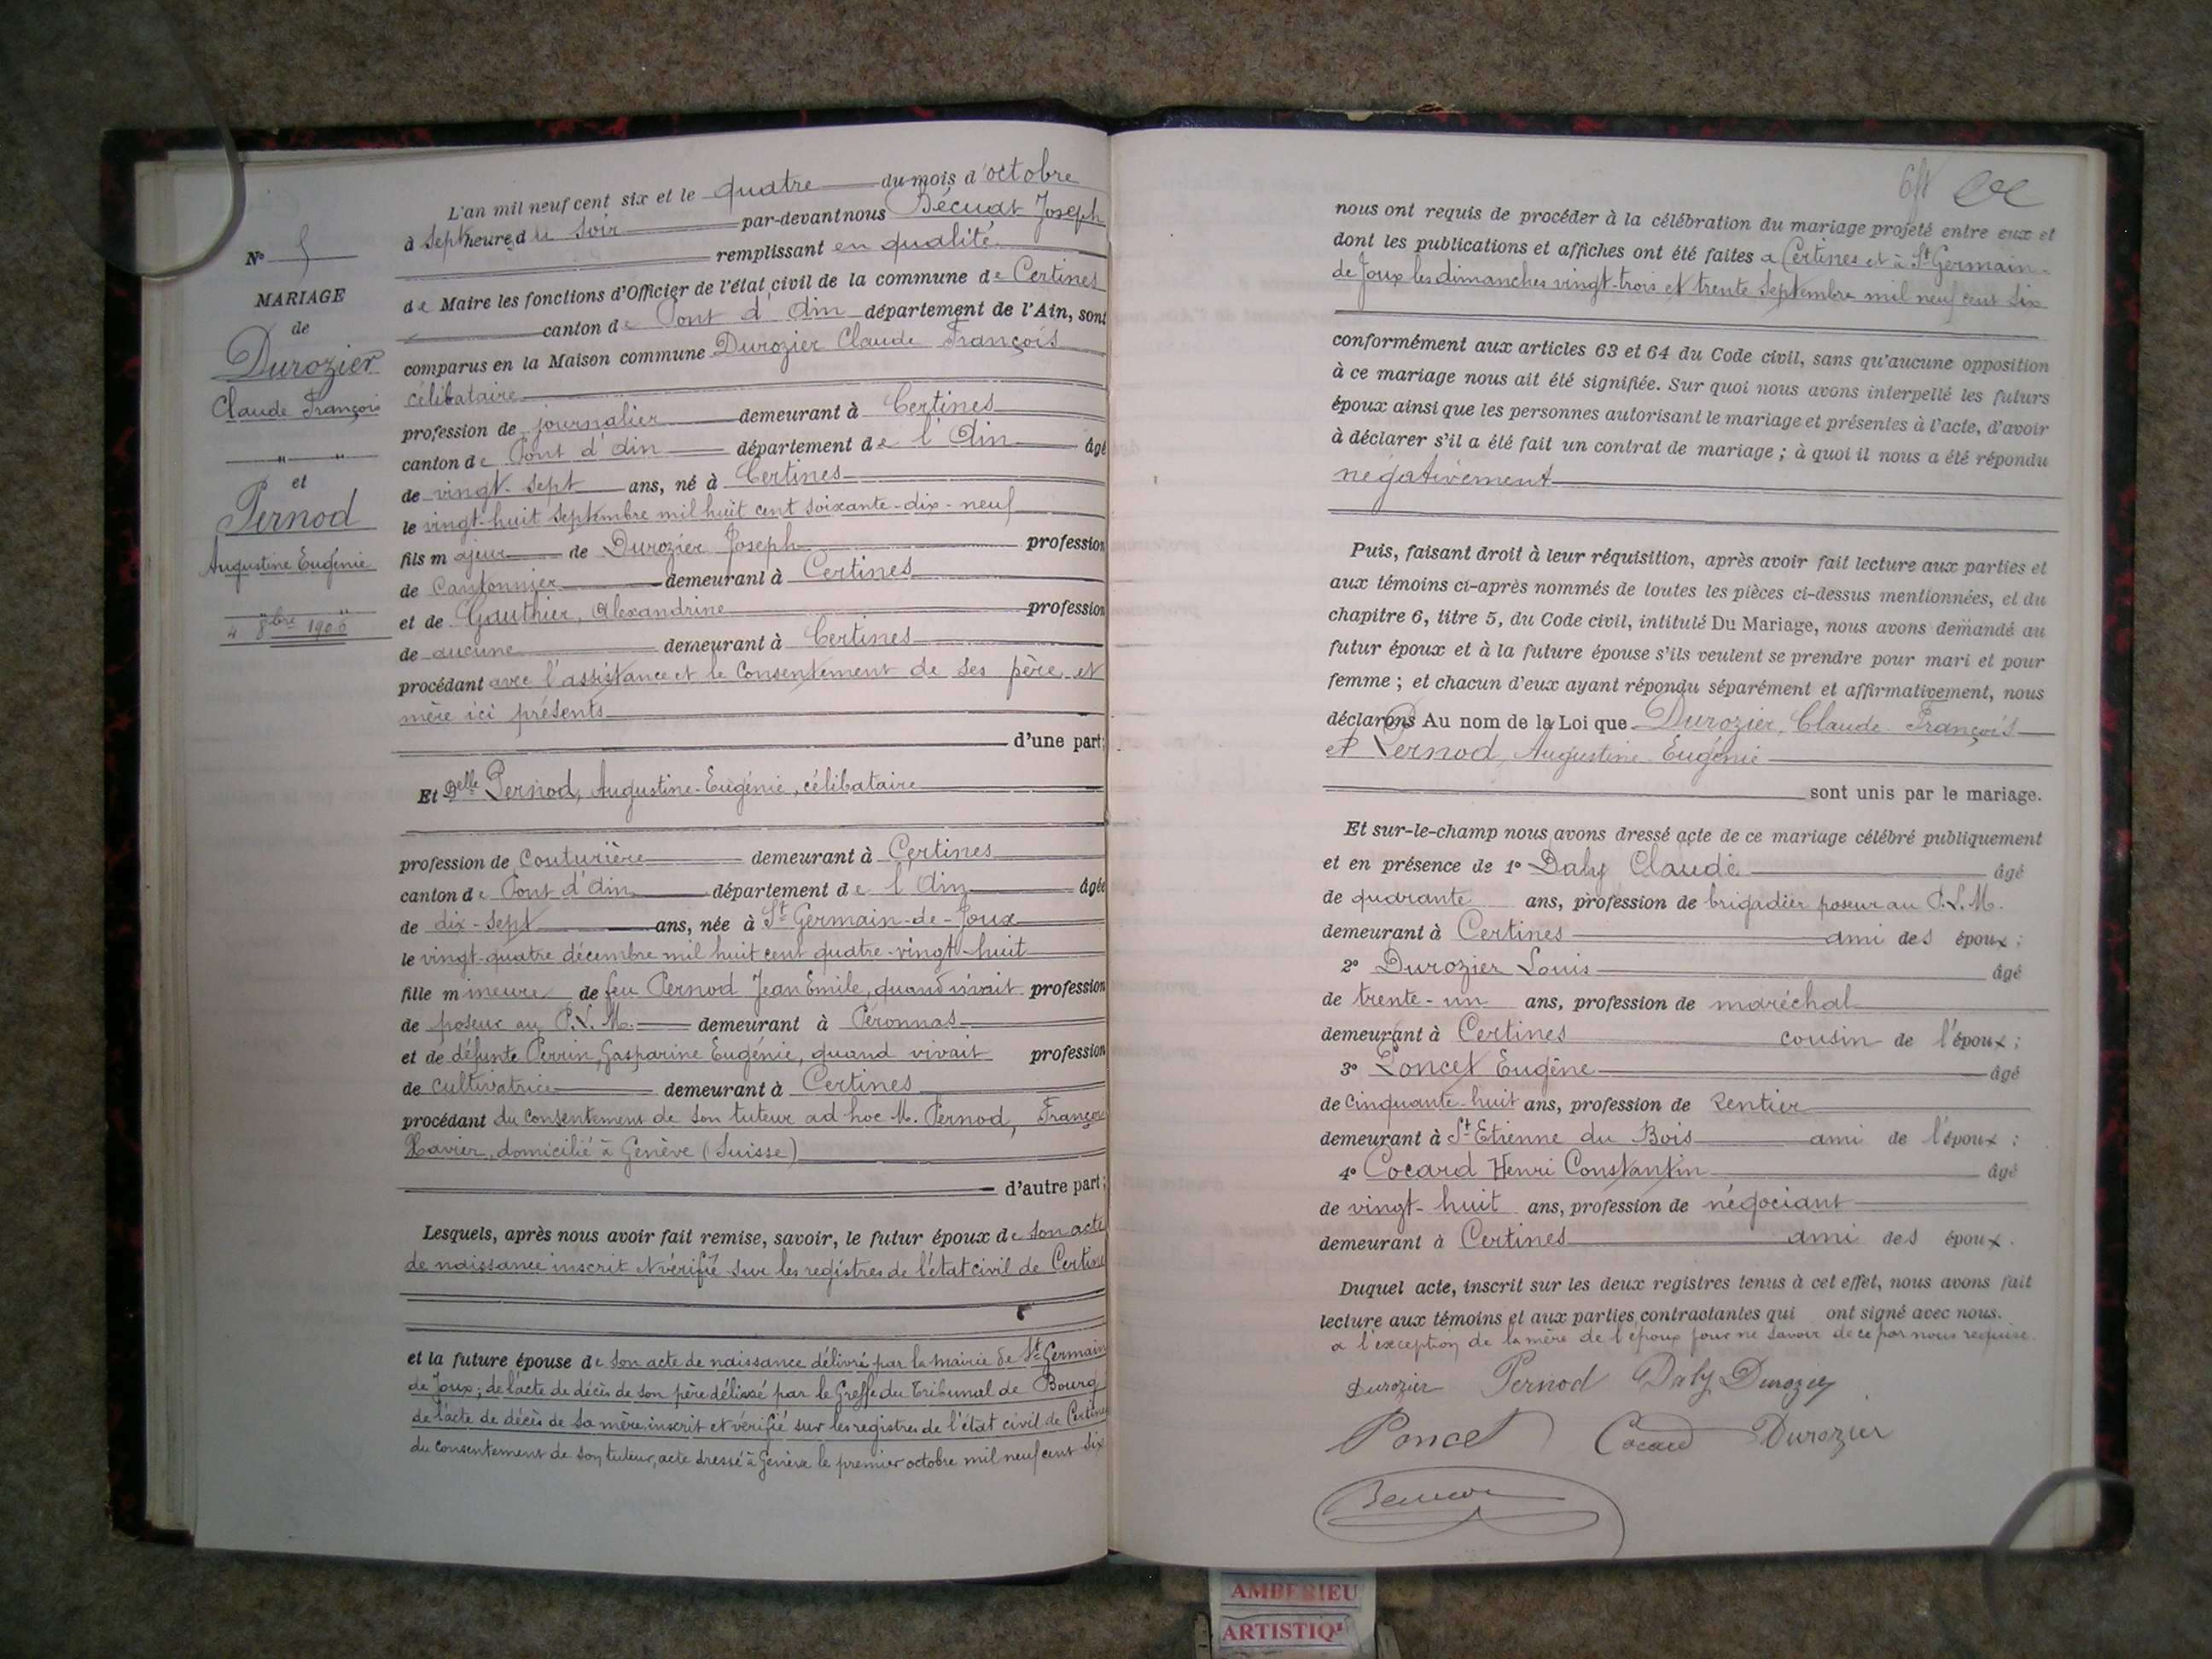 N° 5
MARIAGE
de
Durozier
Claude François
et
Pernod
Augustine Eugénie
4 8bre 1906
L'an mil neuf cent six et le quatre du mois d'octobre
à sept heures du soir par-devant nous Décuat Joseph
remplissant en qualité
de Maire les fonctions d'Officier de l'état civil de la commune de Certines
canton de Pont d'Ain département de l'Ain, sont
comparus en la Maison commune Durozier Claude François
célibataire
profession de journalier demeurant à Certines
canton de Pont d'Ain département de l'Ain âgé
de vingt-sept ans, né à Certines
le vingt-huit septembre mil huit cent soixante-dix-neuf
fils majeur de Durozier Joseph profession
de Cantonnier demeurant à Certines
et de Gauthier, Alexandrine profession
de aucune demeurant à Certines
procédant avec l'assistance et le consentement de ses père et
mère ici présents
d'une part;
Et Delle Pernod, Augustine-Eugénie, célibataire
profession de Couturière demeurant à Certines
canton de Pont d'Ain département de l'Ain âgée
de dix-sept ans, née à St Germain-de-Joux
le vingt-quatre décembre mil huit cent quatre-vingt-huit
fille mineure de feu Pernod Jean Emile, quand vivait profession
de poseur au P.L.M. demeurant à Péronnas
et de défunte Perrin, Gasparine Eugénie, quand vivait profession
de cultivatrice demeurant à Certines
procédant du consentement de son tuteur ad hoc M. Pernod, François
Xavier, domicilié à Genève (Suisse)
d'autre part;
Lesquels, après nous avoir fait remise, savoir, le futur époux de son acte
de naissance inscrit et vérifié sur les registres de l'état civil de Certines
et la future épouse de son acte de naissance délivré par la mairie de St Germain
de Joux; de l'acte de décès de son père délivré par le Greffe du Tribunal de Bourg
de l'acte de décès de sa mère inscrit et vérifié sur les registres de l'état civil de Certines
du consentement de son tuteur, acte dressé à Genève le premier octobre mil neuf cent six
nous ont requis de procéder à la célébration du mariage projeté entre eux et
dont les publications et affiches ont été faites à Certines et à St Germain-
de Joux les dimanches vingt-trois et trente septembre mil neuf cent six
conformément aux articles 63 et 64 du Code civil, sans qu'aucune opposition
à ce mariage nous ait été signifiée. Sur quoi nous avons interpellé les futurs
époux ainsi que les personnes autorisant le mariage et présentes à l'acte, d'avoir
à déclarer s'il a été fait un contrat de mariage; à quoi il nous a été répondu
négativement
Puis, faisant droit à leur réquisition, après avoir fait lecture aux parties et
aux témoins ci-après nommés de toutes les pièces ci-dessus mentionnées, et du
chapitre 6, titre 5, du Code civil, intitulé Du Mariage, nous avons demandé au
futur époux et à la future épouse s'ils veulent se prendre pour mari et pour
femme; et chacun d'eux ayant répondu séparément et affirmativement, nous
déclarons Au nom de la Loi que Durozier, Claude François
et Pernod, Augustine Eugénie
sont unis par le mariage.
Et sur-le-champ nous avons dressé acte de ce mariage célébré publiquement
et en présence de 1° Daly Claude âgé
de quarante ans, profession de brigadier poseur au P.L.M.
demeurant à Certines ami des époux;
2° Durozier Louis âgé
de trente-un ans, profession de maréchal
demeurant à Certines cousin de l'époux;
3° Poncet Eugène âgé
de cinquante-huit ans, profession de rentier
demeurant à St Etienne du Bois ami de l'époux;
4° Cocard Henri Constantin âgé
de vingt-huit ans, profession de négociant
demeurant à Certines ami des époux.
Duquel acte, inscrit sur les deux registres tenus à cet effet, nous avons fait
lecture aux témoins et aux parties contractantes qui ont signé avec nous.
à l'exception de la mère de l'époux pour ne savoir de ce par nous requise.
Durozier Pernod Daly Durozier
Poncet Cocard Durozier
AMBERIEU
ARTISTIQ